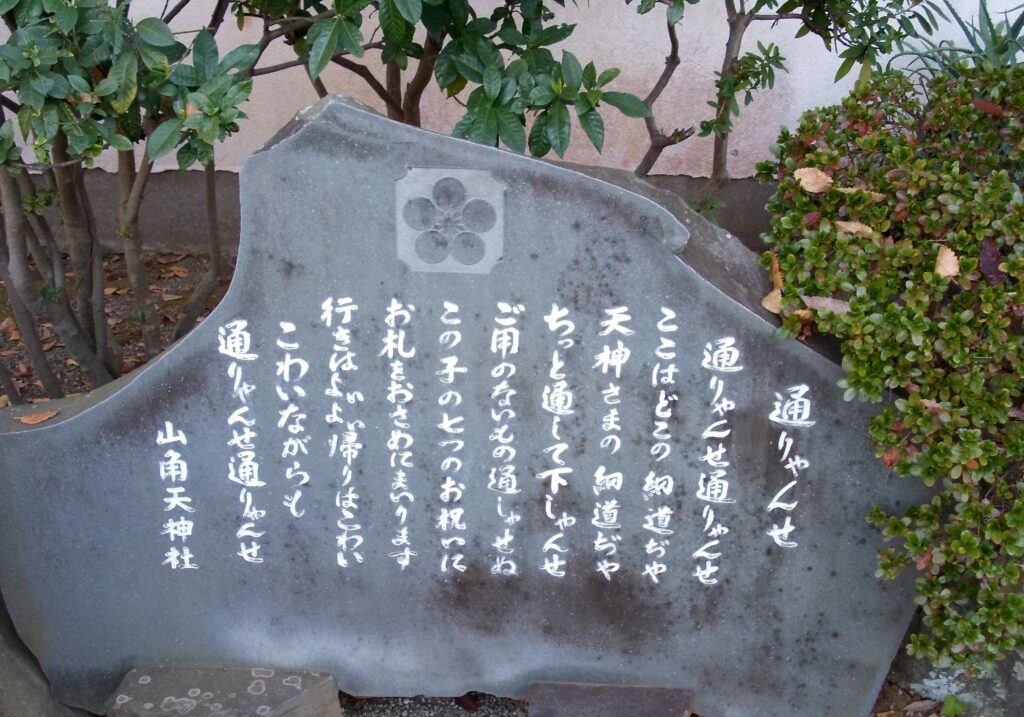 通りゃんせ
通りゃんせ通りゃんせ
ここはどこの細道ぢや
天神さまの 細道ぢや
ちっと通して下しゃんせ
ご用のないもの通しゃせぬ
この子の七つのお祝いに
お札をおさめにまいります
行きはよいよい帰りはこわい
こわいながらも
通りゃんせ通りゃんせ
山角天神社